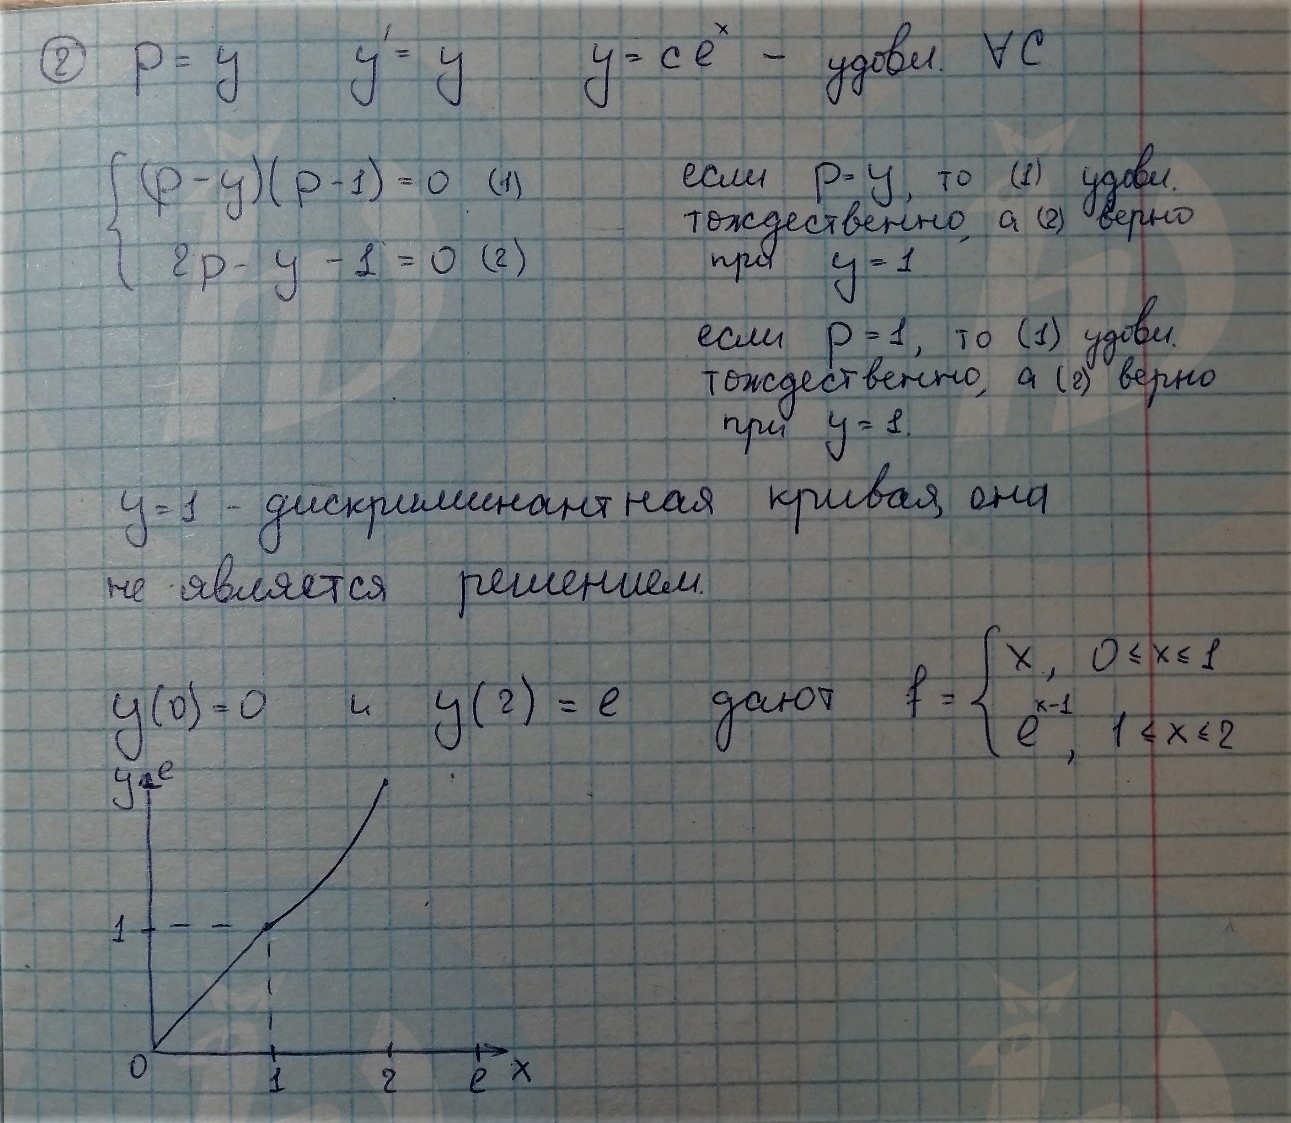 ② p = y y' = y y = ce^x – удовл. ∀C
{ (p-y)(p-1) = 0 (1)
2p - y - 1 = 0 (2)
если p=y, то (1) удовл.
тождественно, а (2) верно
при y = 1
если p = 1, то (1) удовл.
тождественно, а (2) верно
при y = 1.
y = 1 - дискриминантная кривая, она
не является решением.
y(0) = 0 и y(2) = e дают f = { x, 0 ≤ x ≤ 1
e^{x-1}, 1 ≤ x ≤ 2
y e
1
0 1 2 e x